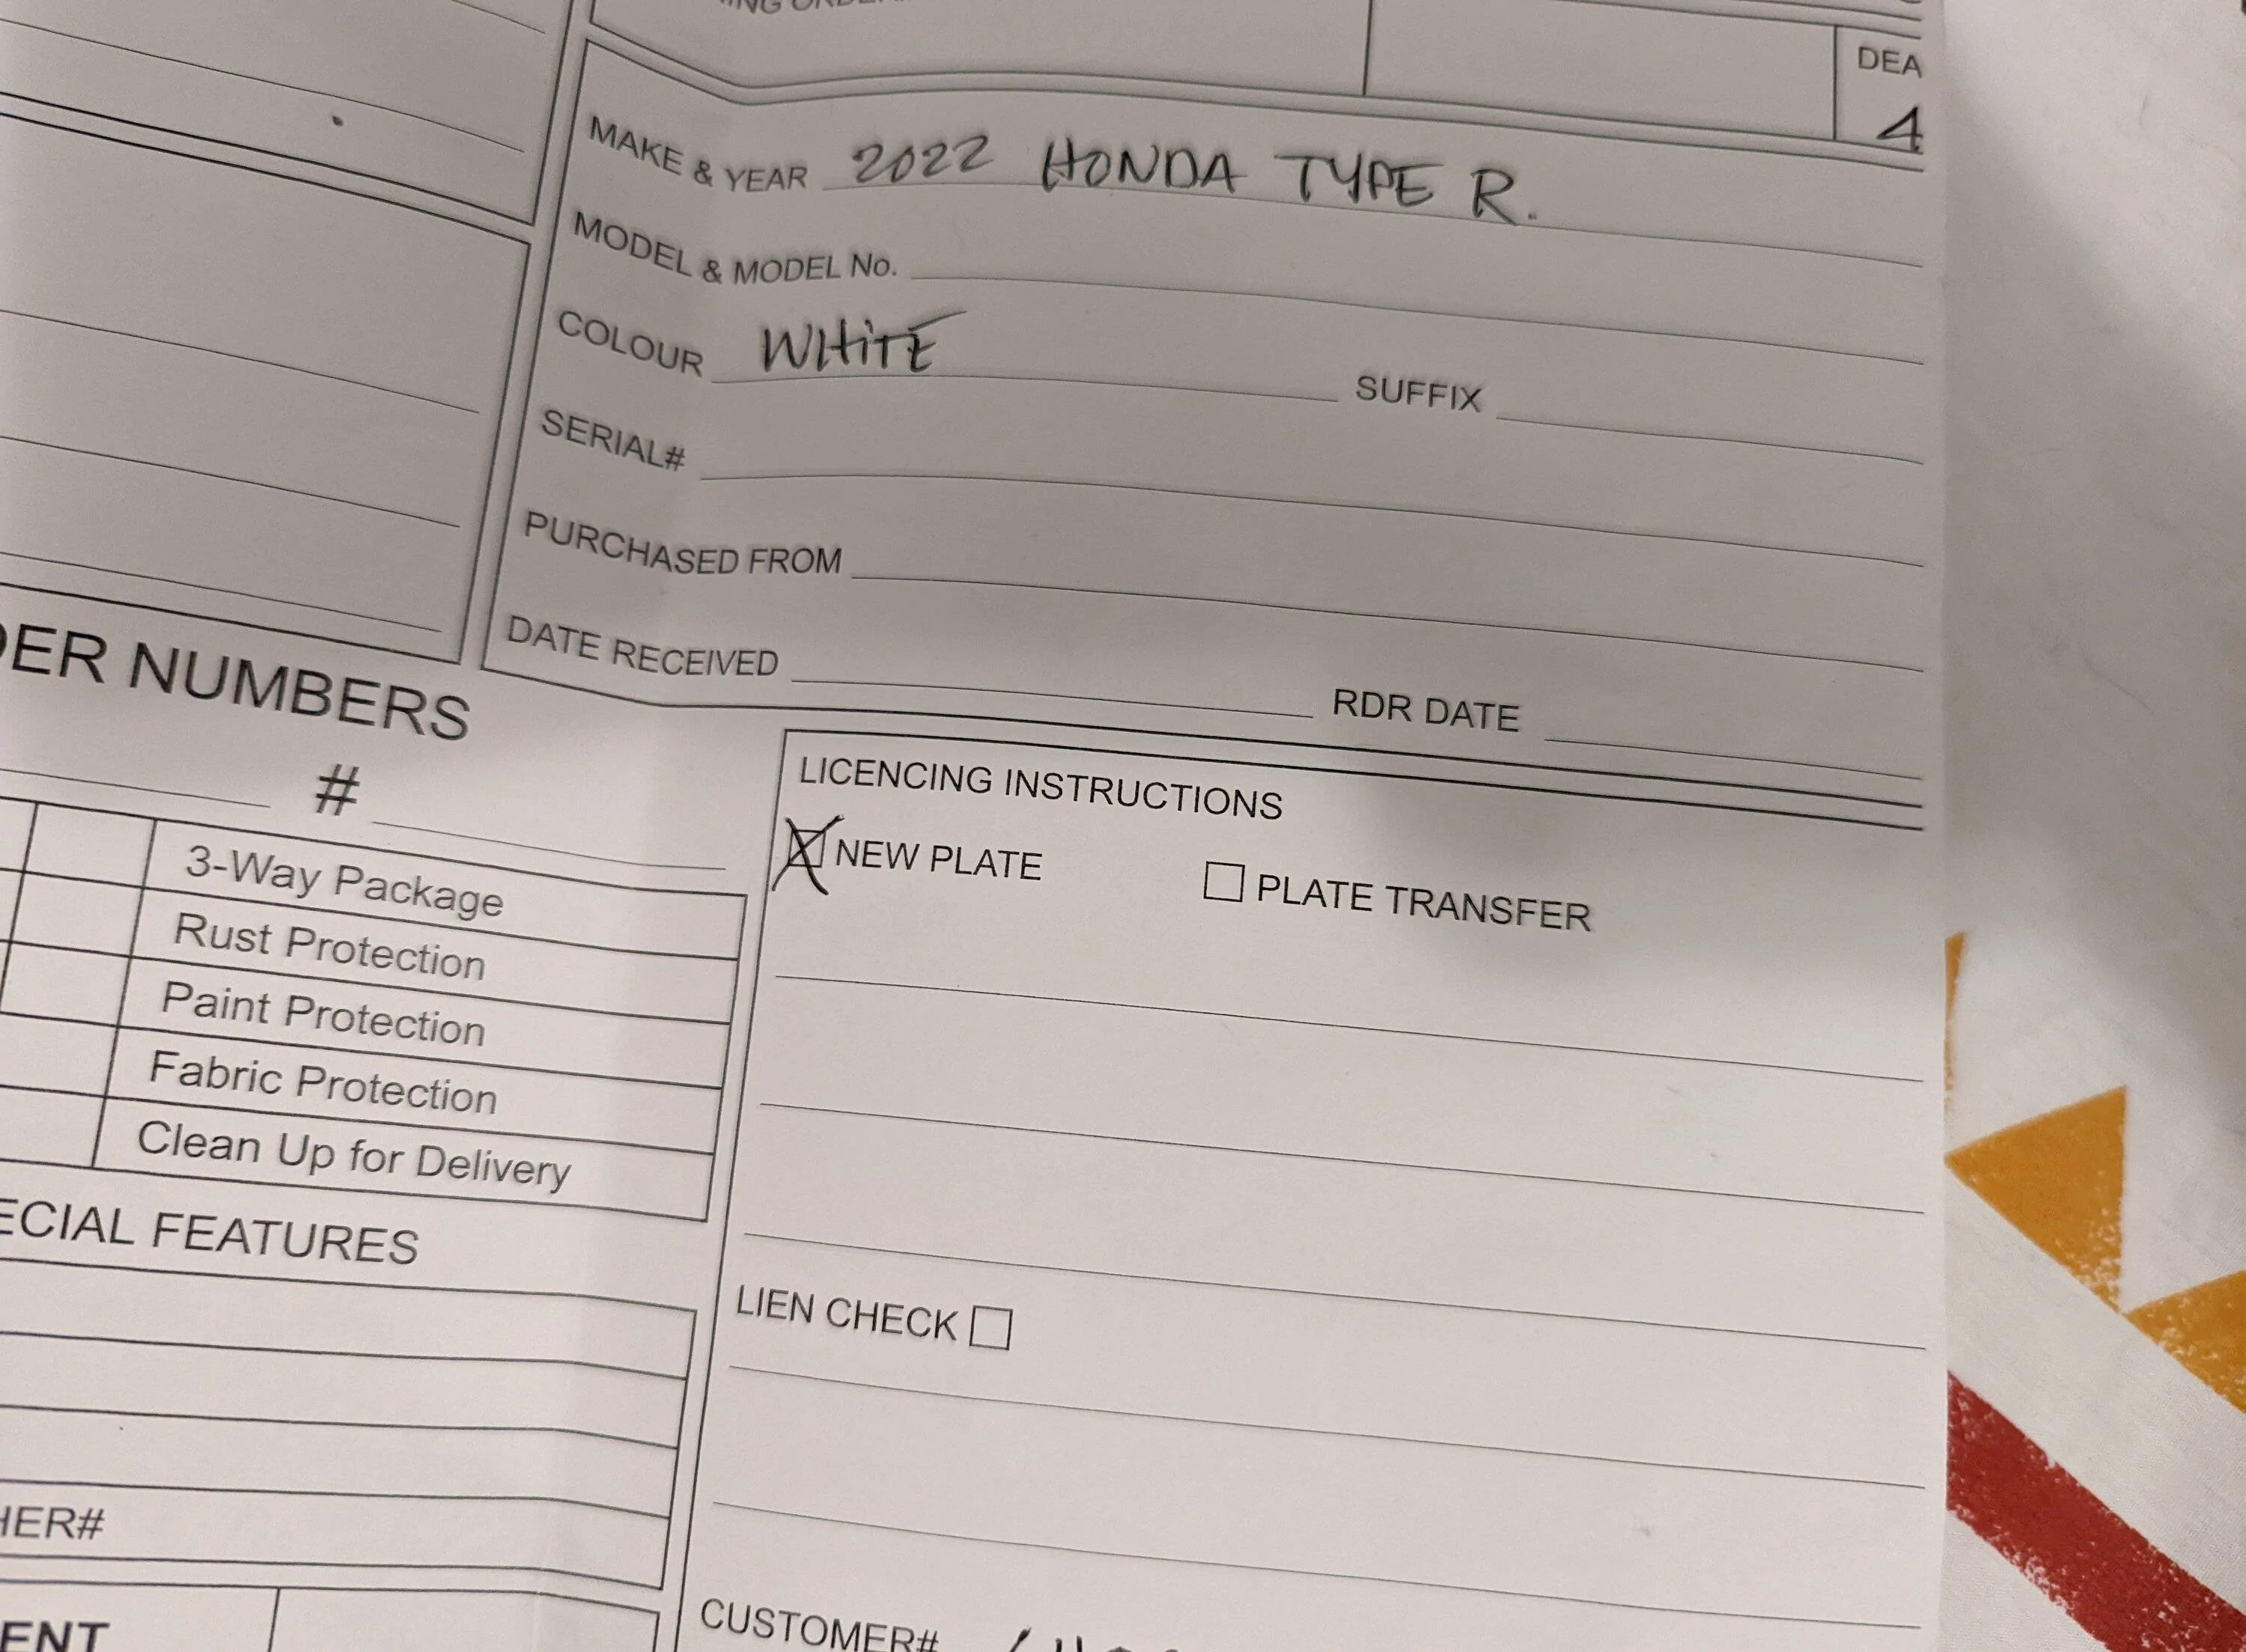 DEA
4
MAKE & YEAR 2022 HONDA TYPE R.
MODEL & MODEL No.
COLOUR WHITE SUFFIX
SERIAL#
PURCHASED FROM
DATE RECEIVED RDR DATE
DER NUMBERS
#
3-Way Package
Rust Protection
Paint Protection
Fabric Protection
Clean Up for Delivery
ECIAL FEATURES
HER#
ENT
LICENCING INSTRUCTIONS
NEW PLATE PLATE TRANSFER
LIEN CHECK
CUSTOMER#